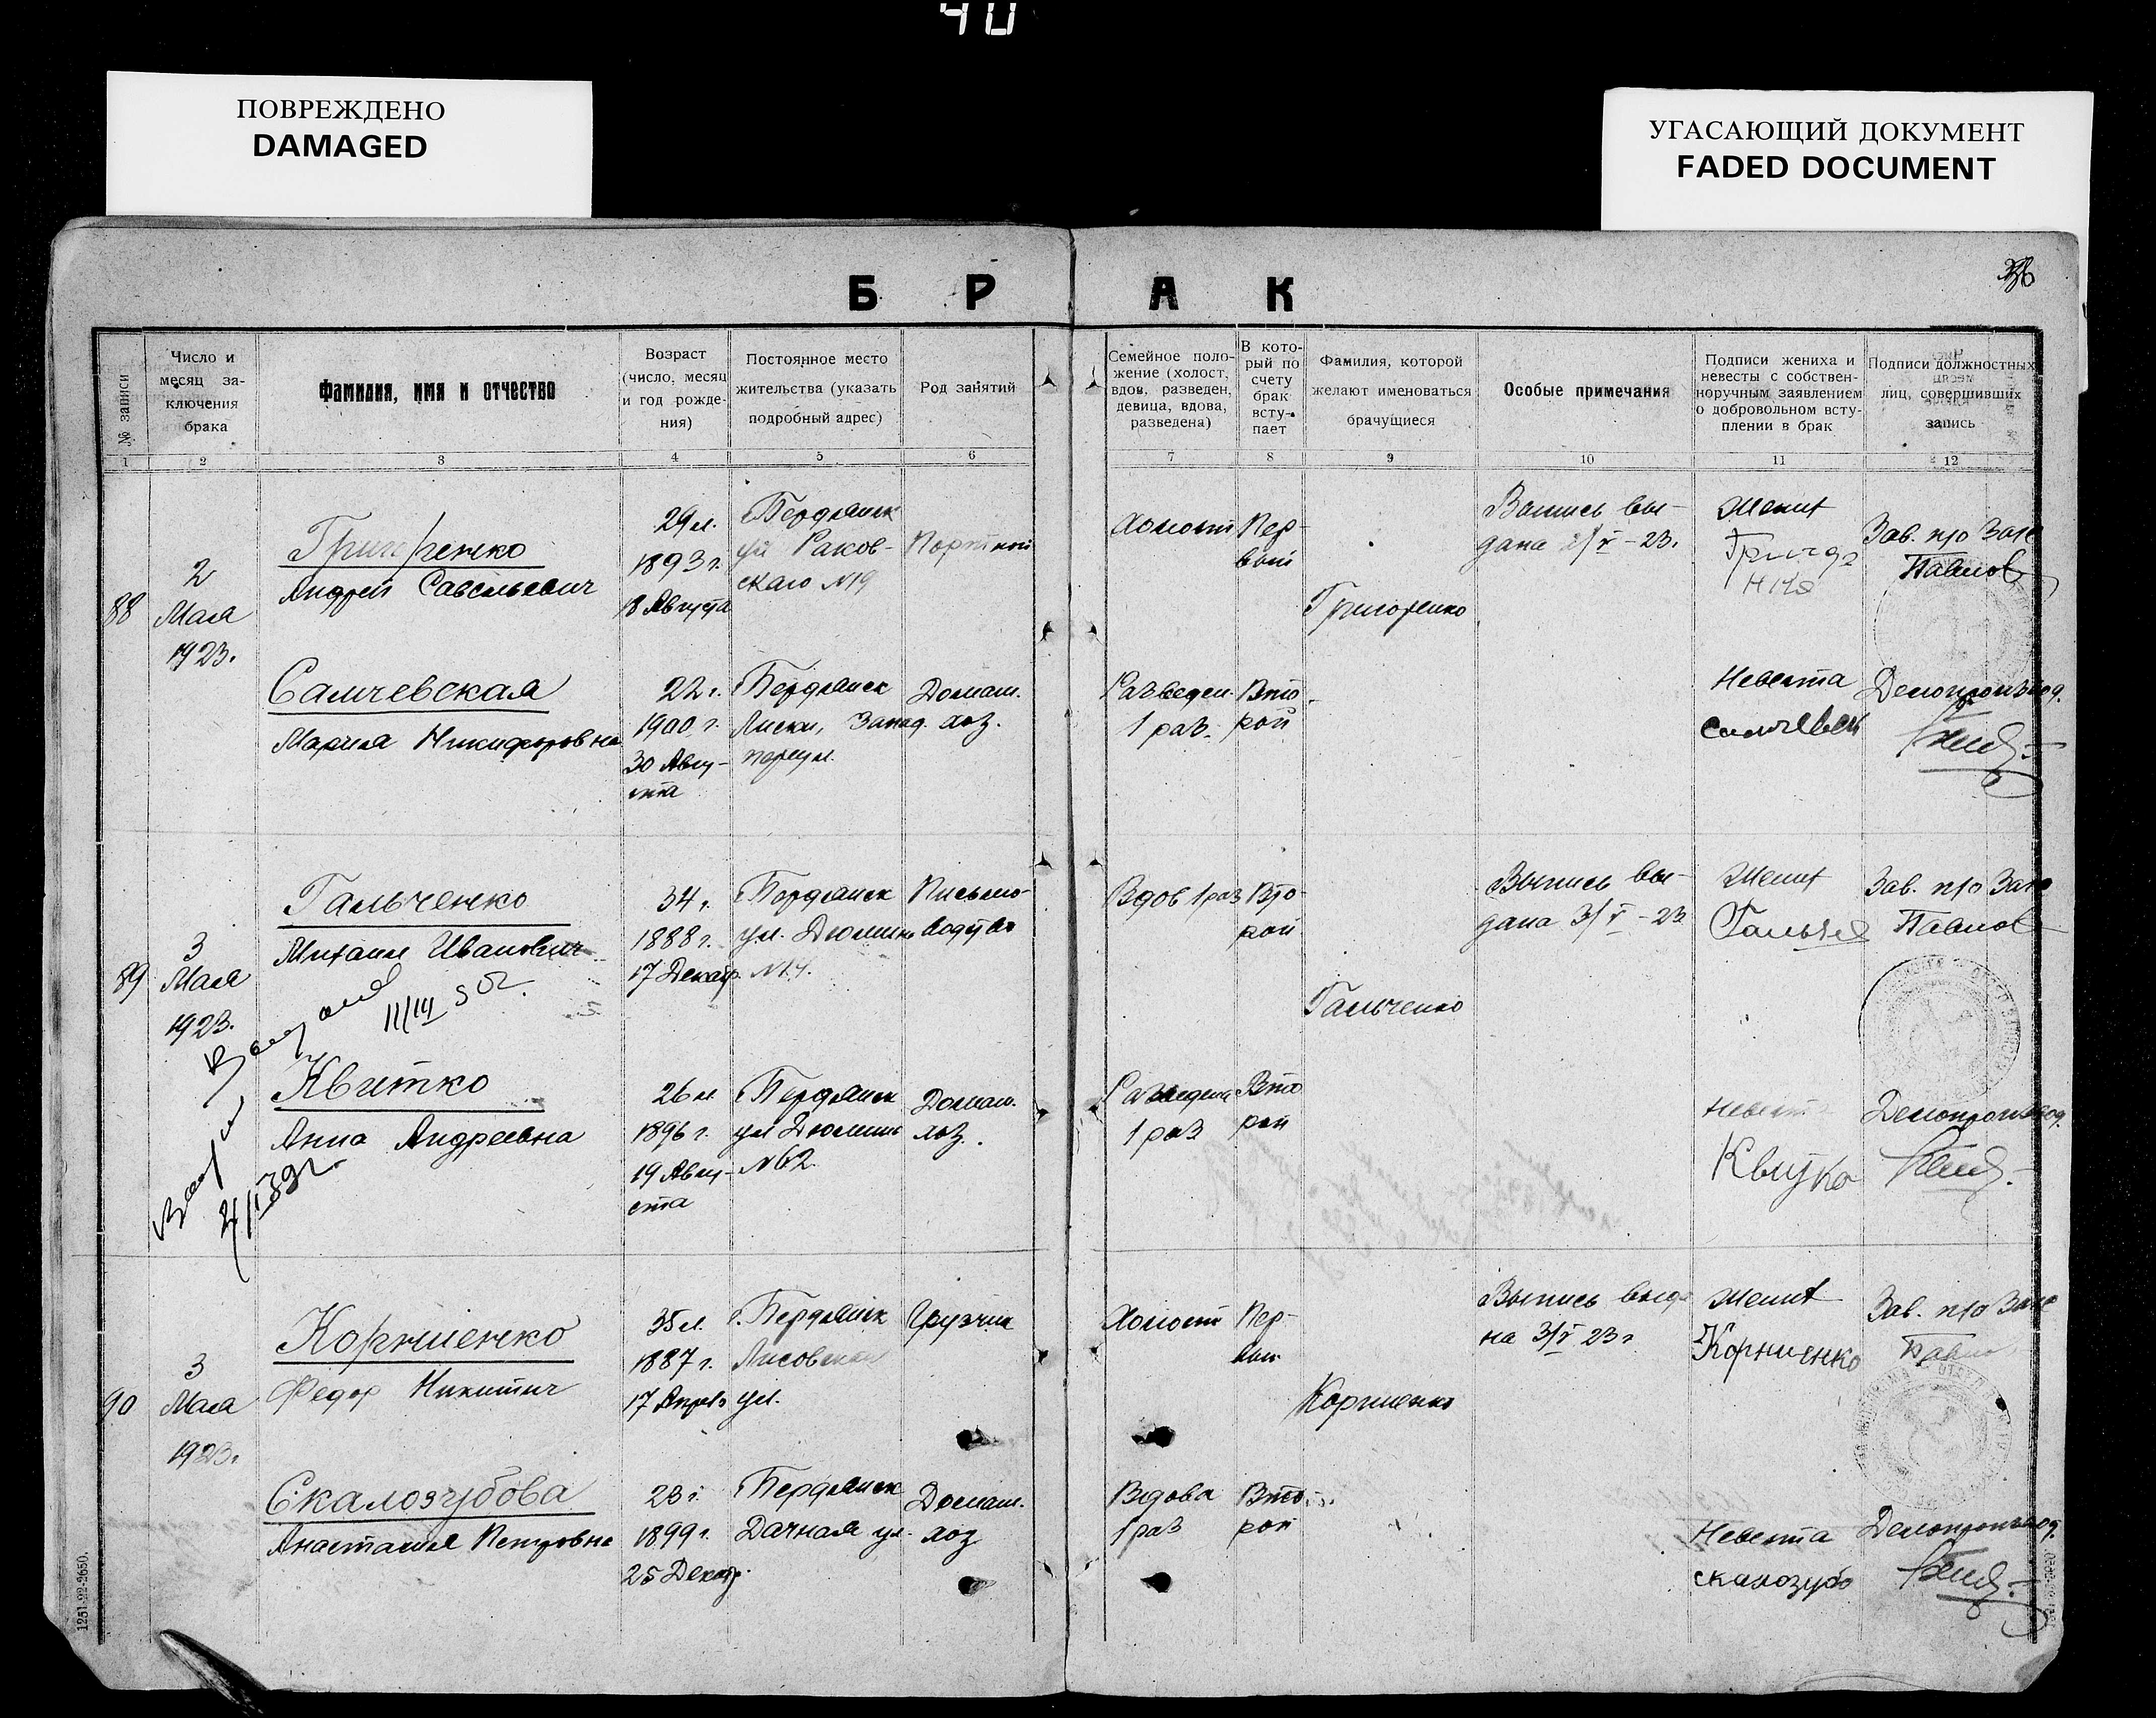 40
ПОВРЕЖДЕНО
DAMAGED
УГАСАЮЩИЙ ДОКУМЕНТ
FADED DOCUMENT
36
БРАК
№ записи
Число и
месяц за-
ключения
брака
Фамилия, имя и отчество
Возраст
(число, месяц
и год рожде-
ния)
Постоянное место
жительства (указать
подробный адрес)
Род занятий
Семейное поло-
жение (холост,
вдов, разведен,
девица, вдова,
разведена)
В кото-
рый по
счету
брак
всту-
пает
Фамилия, которой
желают именоваться
брачущиеся
Особые примечания
Подписи жениха и
невесты с собствен-
норучным заявлением
о добровольном всту-
плении в брак
Подписи должностных
лиц, совершивших
запись
1 2 3 4 5 6 7 8 9 10 11 12
88
2
Мая
1923.
Григоренко
Андрей Савельевич
29 л.
1893 г.
18 Августа
Бердянск
ул Раков-
скаго N19
Портной
Холост
Пер-
вый
Григоренко
Выпись вы-
дана 2/V-23.
Жених
Зав. п/о Загс
Павлов
Самчевская
Мария Никифоровна
22 г.
1900 г.
30 Авгу-
ста
Бердянск
Лиски, Запад.
переул.
Домаш.
хоз.
Разведен.
1 раз.
Вто-
рой
Невеста
Самчевск
Делопроизвод.
89
3
Мая
1923.
Гальченко
Михаил Иванович
34 г.
1888 г.
17 Декабр.
Бердянск
ул. Дюмина
N14.
Письмо-
водство
Вдов 1 раз
Вто-
рой
Гальченко
Выпись вы-
дана 3/V-23
Жених
Гальче
Зав. п/о Загс
Павлов
11/III 50г.
Квитко
Анна Андреевна
26 л
1896 г.
19 Авгу-
ста
Бердянск
ул Дюмина
N62.
Домаш.
хоз.
Разведена
1 раз
Вто
рой
Невеста
Квитко
Делопроизвод.
90
3
Мая
1923г.
Корниенко
Федор Никитич
35 л.
1887 г.
17 Апрел.
г. Бердянск
Лисовская
ул.
Грузчик
Холост
Пер-
вый
Корниенко
Выпись выда-
на 3/V 23 г
Жених
Корниенко
Зав. п/о Загс
Павлов
Скалозубова
Анастасия Петровна
23 г.
1899 г.
25 Декабр.
Бердянск
Дачная ул.
Домаш.
хоз
Вдова
1 раз
Вто-
рой
Невеста
скалозубо
Делопроизвод.
1251-22-2650.